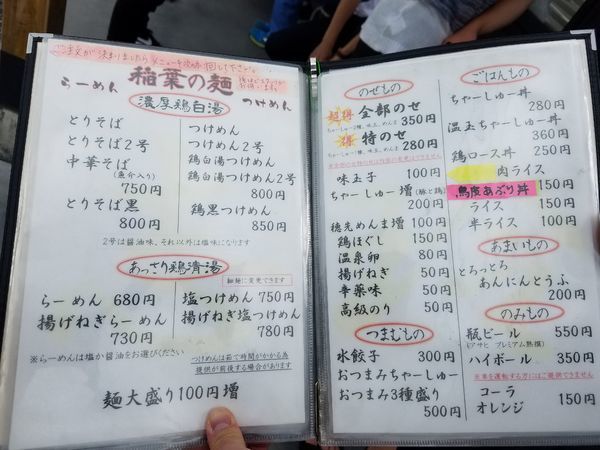 ご注文が決まりましたらメニューを次の方に回して下さい。
稲葉の麺
らーめん
つけめん
濃厚鶏白湯
とりそば
とりそば2号
中華そば
(魚介入り)
750円
とりそば黒
800円
つけめん
つけめん2号
鶏白湯つけめん
鶏白湯つけめん2号
800円
鶏黒つけめん
850円
2号は醤油味、それ以外は塩味になります
あっさり鶏清湯
細麺に変更できます
らーめん 680円
揚げねぎらーめん
730円
塩つけめん 750円
揚げねぎ塩つけめん
780円
※らーめんは塩か醤油をお選びください
つけめんは茹で時間がかかる為
提供が前後する場合があります
麺大盛り100円増
のせもの
超得 全部のせ
350円
得 特のせ
280円
味玉子 100円
ちゃーしゅー増(豚と鶏)
200円
穂先めんま増 100円
鶏ほぐし 150円
温泉卵 80円
揚げねぎ 50円
辛薬味 50円
高級のり 50円
つまむもの
水餃子 300円
おつまみちゃーしゅー
おつまみ3種盛り
500円
ごはんもの
ちゃーしゅー丼
280円
温玉ちゃーしゅー丼
360円
鶏ロース丼 250円
肉ライス
鳥皮あぶり丼 150円
ライス 150円
半ライス 100円
あまいもの
とろっとろ
あんにんとうふ
200円
のみもの
瓶ビール 550円
(アサヒ プレミアム熟撰)
ハイボール 350円
※車を運転する方にはご提供できません
コーラ
オレンジ
150円